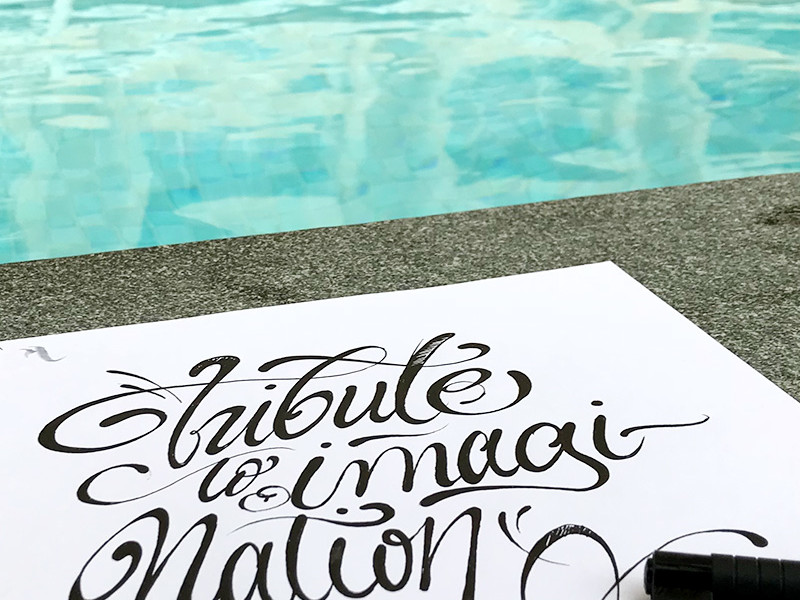 Tribute
to imagi
Nation